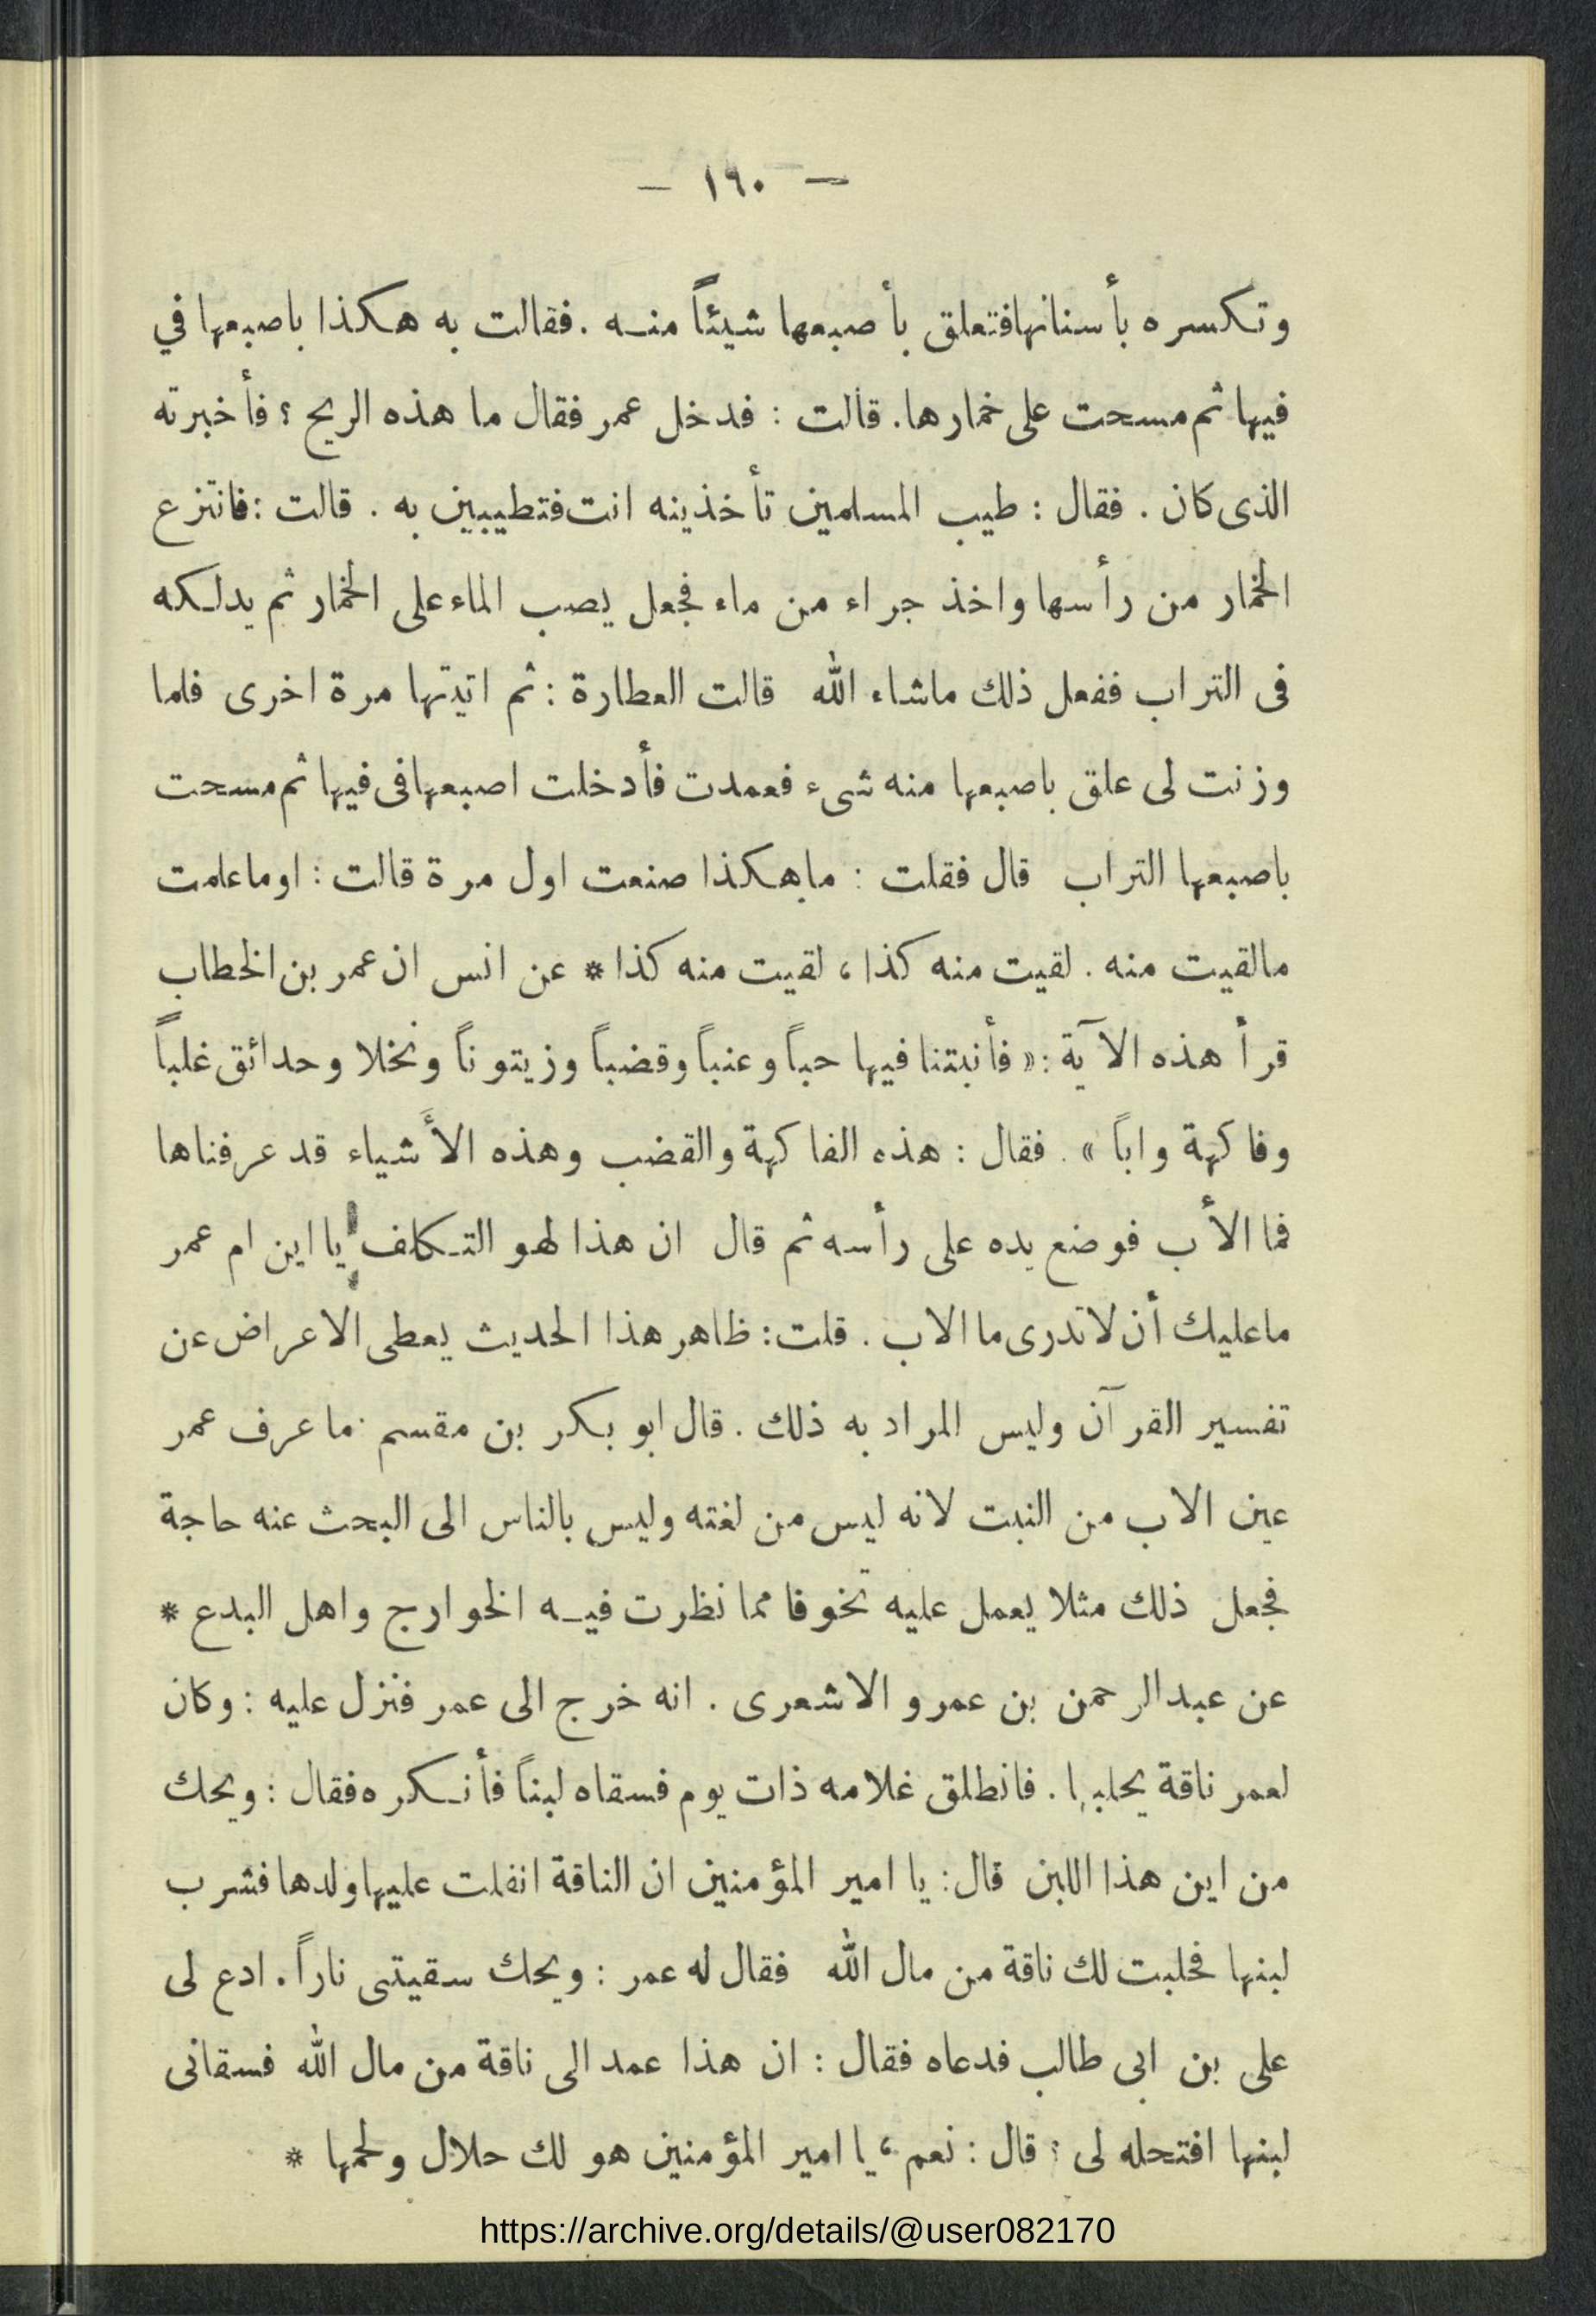 — ١٦٠ —
وتكسره بأسنانهافتعلق بأصبعها شيئاً منه .فقالت به هكذا باصبعها في
فيها ثم مسحت على خمارها. قالت : فدخل عمر فقال ما هذه الريح ؟ فأخبرته
الذى كان . فقال : طيب المسلمين تأخذينه انت فتطيبين به . قالت : فانتزع
الخمار من رأسها واخذ جراء من ماء فجعل يصب الماء على الخمار ثم يدلكه
فى التراب ففعل ذلك ماشاء الله قالت العطارة : ثم اتيتها مرة اخرى فلما
وزنت لى علق باصبعها منه شىء فعمدت فأدخلت اصبعها فى فيها ثم مسحت
باصبعها التراب قال فقلت : ماهكذا صنعت اول مرة قالت : اوماعلمت
مالقيت منه . لقيت منه كذا ، لقيت منه كذا * عن انس ان عمر بن الخطاب
قرأ هذه الآية : « فأنبتنا فيها حباً وعنباً وقضباً وزيتوناً ونخلا وحدائق غلباً
وفاكهة واباً » . فقال : هذه الفاكهة والقضب وهذه الأشياء قد عرفناها
فما الأب فوضع يده على رأسه ثم قال ان هذا لهو التكلف يا ابن ام عمر
ماعليك أن لاتدرى ما الاب . قلت : ظاهر هذا الحديث يعطى الاعراض عن
تفسير القرآن وليس المراد به ذلك . قال ابو بكر بن مقسم . ما عرف عمر
عين الاب من النبت لانه ليس من لغته وليس بالناس الى البحث عنه حاجة
فجعل ذلك مثلا يعمل عليه تخوفا مما نظرت فيه الخوارج واهل البدع *
عن عبدالرحمن بن عمرو الاشعرى . انه خرج الى عمر فنزل عليه : وكان
لعمر ناقة يحلبها . فانطلق غلامه ذات يوم فسقاه لبناً فأنكره فقال : ويحك
من اين هذا اللبن قال : يا امير المؤمنين ان الناقة انفلت عليها ولدها فشرب
لبنها فحلبت لك ناقة من مال الله فقال له عمر : ويحك سقيتنى ناراً . ادع لى
على بن ابى طالب فدعاه فقال : ان هذا عمد الى ناقة من مال الله فسقانى
لبنها افتحله لى ؟ قال : نعم ، يا امير المؤمنين هو لك حلال ولحمها *
https://archive.org/details/@user082170